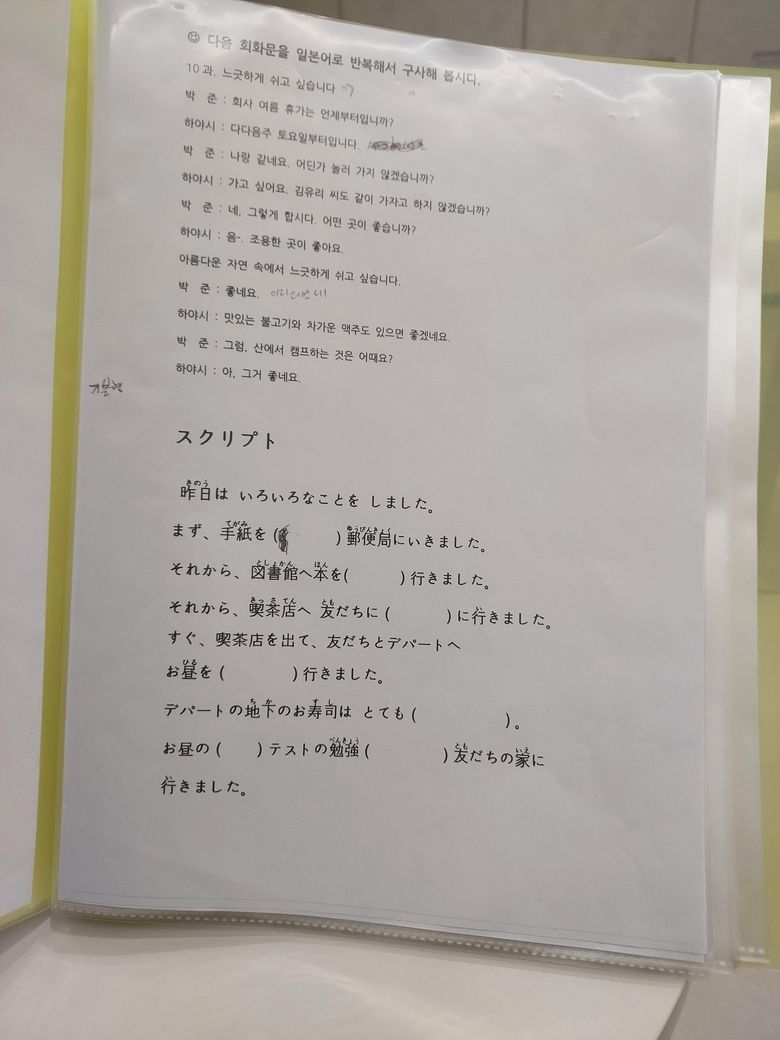 ☺ 다음 회화문을 일본어로 반복해서 구사해 봅시다.
10과. 느긋하게 쉬고 싶습니다
박 준 : 회사 여름 휴가는 언제부터입니까?
하야시 : 다다음주 토요일부터입니다.
박 준 : 나랑 같네요. 어딘가 놀러 가지 않겠습니까?
하야시 : 가고 싶어요. 김유리 씨도 같이 가자고 하지 않겠습니까?
박 준 : 네, 그렇게 합시다. 어떤 곳이 좋습니까?
하야시 : 음-. 조용한 곳이 좋아요.
아름다운 자연 속에서 느긋하게 쉬고 싶습니다.
박 준 : 좋네요.
하야시 : 맛있는 불고기와 차가운 맥주도 있으면 좋겠네요.
박 준 : 그럼, 산에서 캠프하는 것은 어때요?
하야시 : 아, 그거 좋네요.
기본형
スクリプト
昨日は いろいろなことを しました。
まず、手紙を ( ) 郵便局にいきました。
それから、図書館へ本を( ) 行きました。
それから、喫茶店へ 友だちに ( ) に行きました。
すぐ、喫茶店を出て、友だちとデパートへ
お昼を ( ) 行きました。
デパートの地下のお寿司は とても ( )。
お昼の ( ) テストの勉強 ( ) 友だちの家に
行きました。